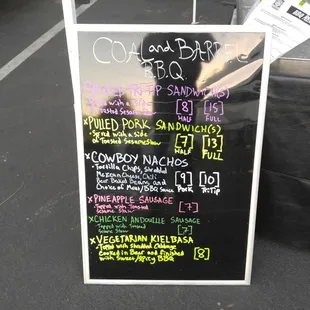 COAL and BARREL
B.B.Q
SMOKED TRI-TIP SANDWICH(S)
Served with a side
of Toasted Sesame
[8] [15]
HALF FULL
x PULLED PORK SANDWICH(S)
Served with a side
of Toasted Sesame Slaw
[7] [13]
HALF FULL
x COWBOY NACHOS
Tortilla Chips, Shredded
Mexican Cheese, Chili
Beer Baked Beans, and
Choice of Meat/BBQ Sauce
[9] [10]
Pork Tri-Tip
x PINEAPPLE SAUSAGE
Topped with Toasted
Sesame Slaw
[7]
x CHICKEN ANDOUILLE SAUSAGE
Topped with Toasted
Sesame Slaw
[7]
x VEGETARIAN KIELBASA
Topped with Shredded Cabbage
Cooked in Beer and finished
with Sweet/Spicy BBQ
[8]